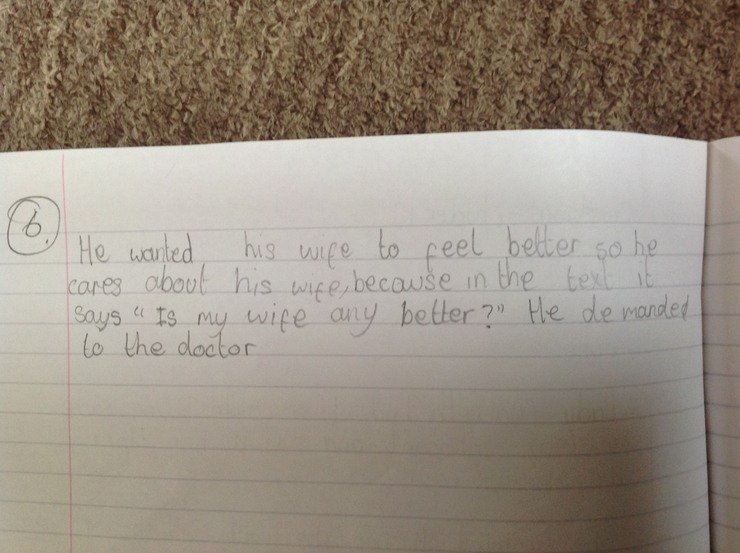 6.
He wanted his wife to feel better so he
cares about his wife, because in the text it
says "Is my wife any better?" He demanded
to the doctor